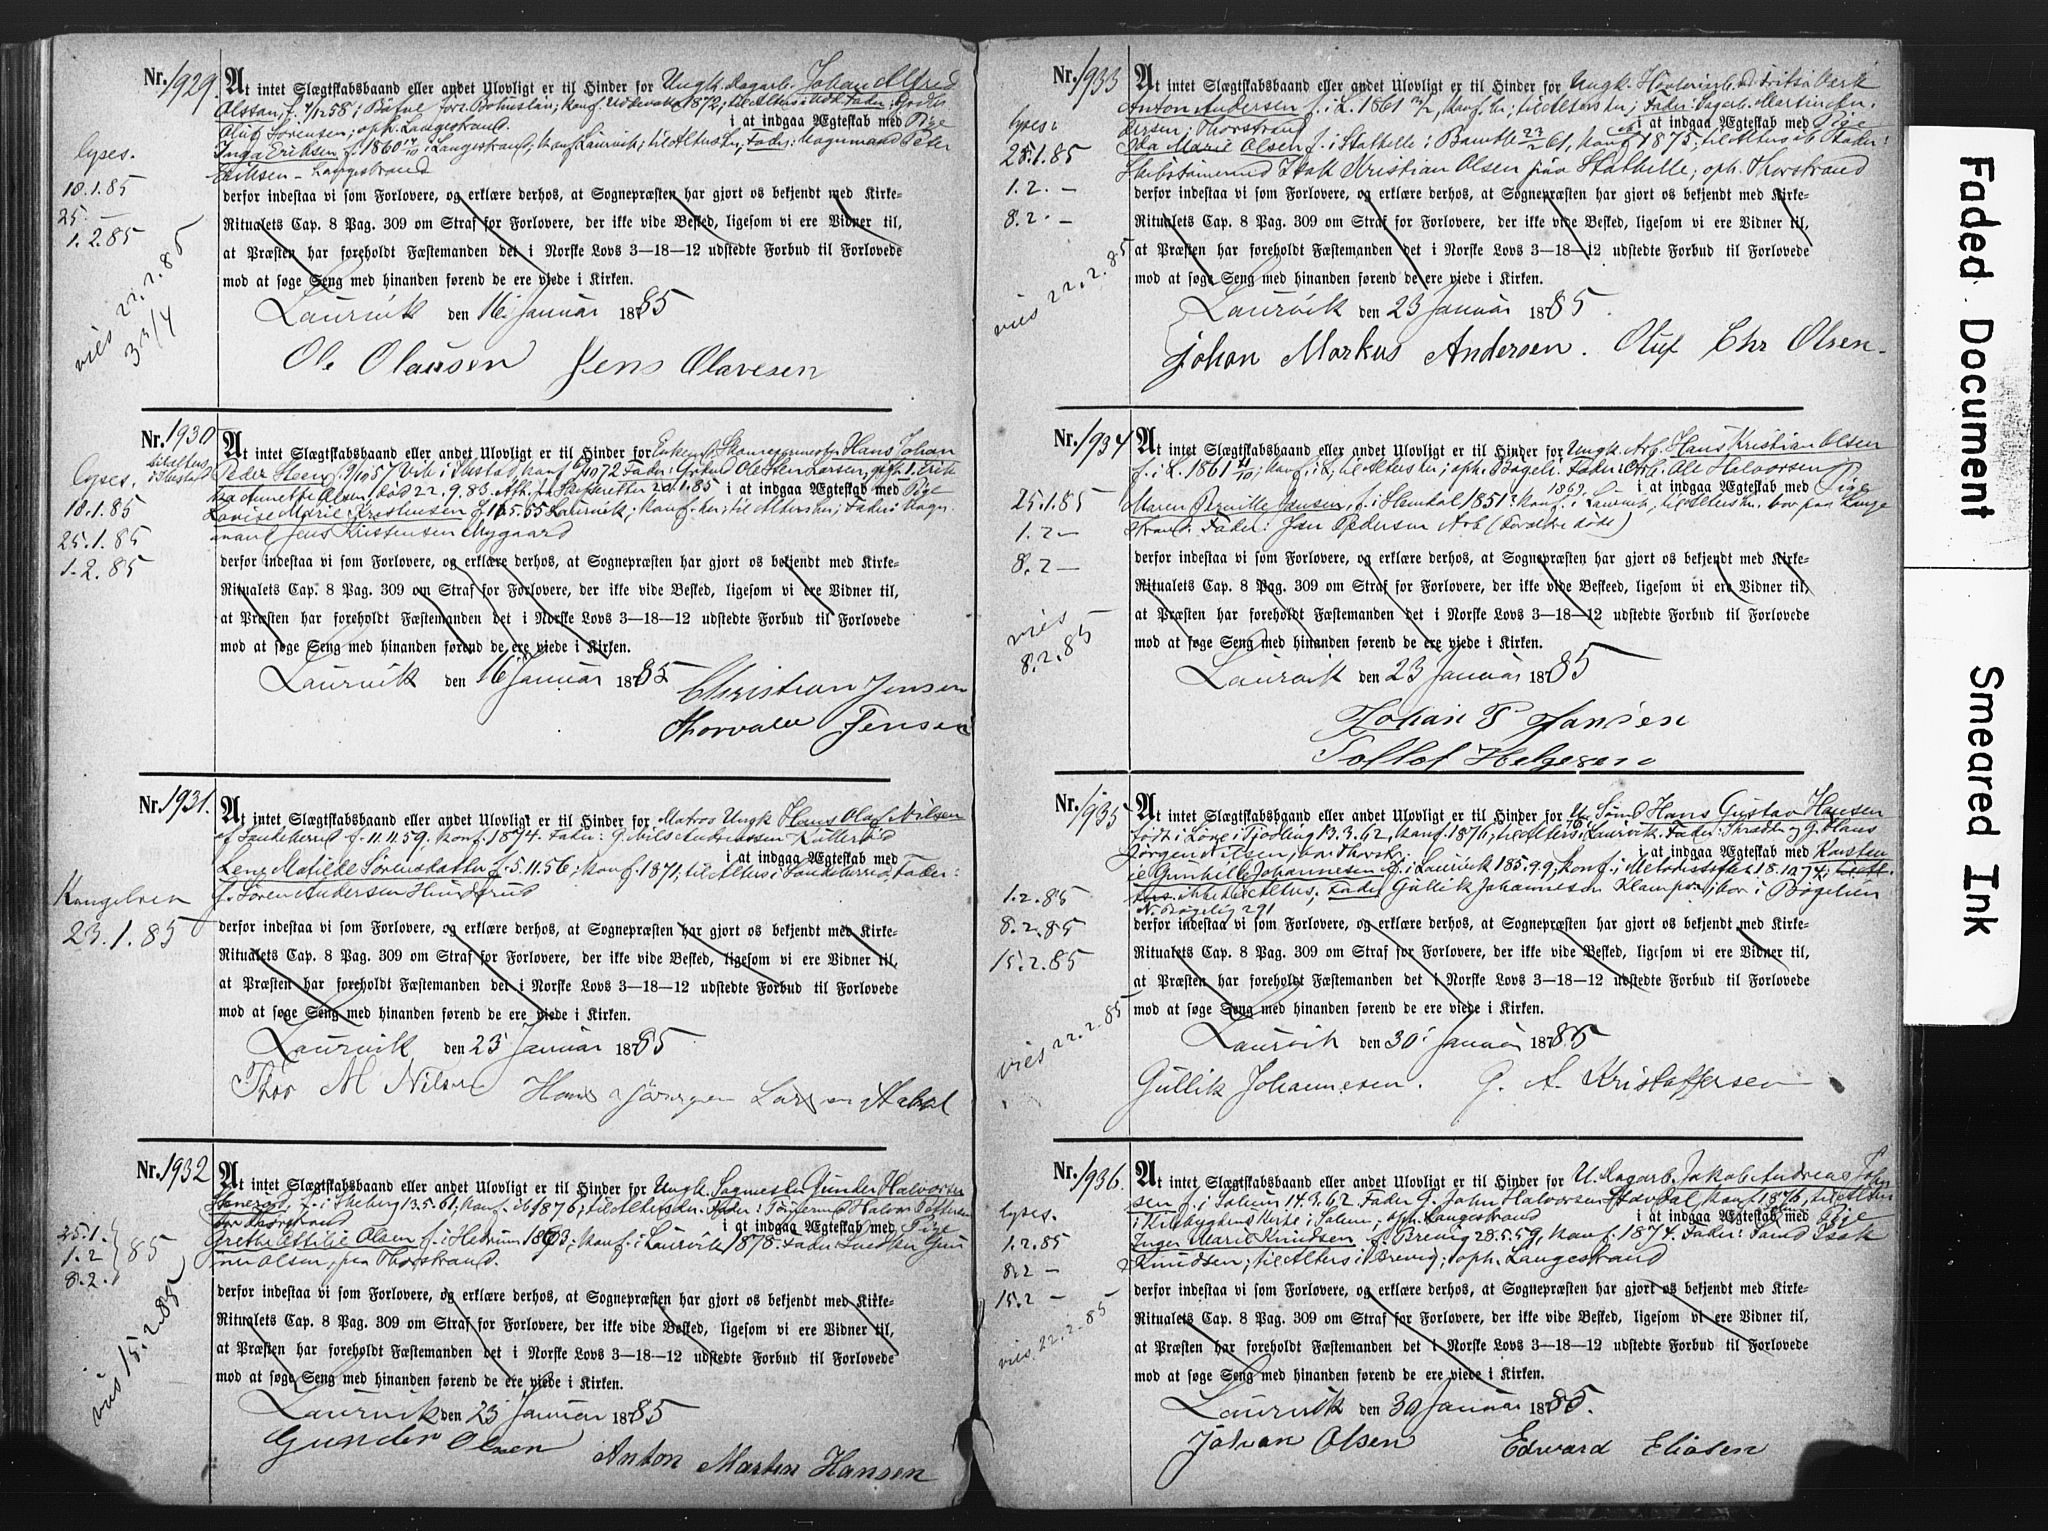 Nr. 1929.
At intet Slægtskabsbaand eller andet Ulovligt er til Hinder for Ungk. Dagarb. Johan Alfred
Olssan, f. 7/12 58 i
Oluf Sørensen, oph. Langestrand. i at indgaa Ægteskab med Pige
Inga Eriksen f. 1860 i Langestrand, konf. Laurvik, til Alters hr, Fader: Peter
Eriksen - Langestrand
derfor indestaa vi som Forlovere, og erklære derhos, at Sognepræsten har gjort os bekjendt med Kirke-
Ritualets Cap. 8 Pag. 309 om Straf for Forlovere, der ikke vide Besked, ligesom vi ere Vidner til,
at Præsten har foreholdt Fæstemanden det i Norske Lovs 3—18—12 udstedte Forbud til Forlovede
mod at søge Seng med hinanden førend de ere viede i Kirken.
Laurvik den 16 Januar 1885
Ole Olausen Jens Olavesen
lyses.
18.1.85
25. —
1.2.85
vies 22.2.85
Nr. 1930
At intet Slægtskabsbaand eller andet Ulovligt er til Hinder for Enkem. Skomagermester Hans Johan
Peder
død 22.9.83. i at indgaa Ægteskab med Pige
Lovise Marie Kristensen f. 11.5.55 Laurvik; konf. her; til Alters her; Fader:
Jens Kristensen Nygaard
derfor indestaa vi som Forlovere, og erklære derhos, at Sognepræsten har gjort os bekjendt med Kirke-
Ritualets Cap. 8 Pag. 309 om Straf for Forlovere, der ikke vide Besked, ligesom vi ere Vidner til,
at Præsten har foreholdt Fæstemanden det i Norske Lovs 3—18—12 udstedte Forbud til Forlovede
mod at søge Seng med hinanden førend de ere viede i Kirken.
Laurvik den 16 Januar 1885
Christian Jensen
Thorvald Jensen
lyses.
18.1.85
25.1.85
1.2.85
Nr. 1931.
At intet Slægtskabsbaand eller andet Ulovligt er til Hinder for Matros Ungk. Hans Olaf Nilsen
af Sandeherred f. 11.11.59. konf. 1874. Fader: G. Nils Andreassen
i at indgaa Ægteskab med
Lene Matilde Sørensdatter f. 5.11.56; konf. 1871; til Alters i Sandeherred, Fader:
f. Søren Andersen
derfor indestaa vi som Forlovere, og erklære derhos, at Sognepræsten har gjort os bekjendt med Kirke-
Ritualets Cap. 8 Pag. 309 om Straf for Forlovere, der ikke vide Besked, ligesom vi ere Vidner til,
at Præsten har foreholdt Fæstemanden det i Norske Lovs 3—18—12 udstedte Forbud til Forlovede
mod at søge Seng med hinanden førend de ere viede i Kirken.
Laurvik den 23 Januar 1885
Thor M Nilsen Hans Jørgen Larsen
Kongebrev
23.1.85
Nr. 1932
At intet Slægtskabsbaand eller andet Ulovligt er til Hinder for Ungk. Sagmester Gunder Halvorsen
f. i Skeberg 13.5.61, konf. 1876, til Alters her. Fader: Halvor
bor Thorstrand i at indgaa Ægteskab med Pige
Grethe Ottilie Olsen f. i Hedrum 1863; konf. i Laurvik 1878. Fader:
Olsen, paa Thorstrand.
derfor indestaa vi som Forlovere, og erklære derhos, at Sognepræsten har gjort os bekjendt med Kirke-
Ritualets Cap. 8 Pag. 309 om Straf for Forlovere, der ikke vide Besked, ligesom vi ere Vidner til,
at Præsten har foreholdt Fæstemanden det i Norske Lovs 3—18—12 udstedte Forbud til Forlovede
mod at søge Seng med hinanden førend de ere viede i Kirken.
Laurvik den 23 Januar 1885
Gunder Olsen Anton Martin Hansen
25.1.
1.2 85
8.2.
vies 15.2.85
Nr. 1933
At intet Slægtskabsbaand eller andet Ulovligt er til Hinder for Ungk.
Anton Andersen f. i L. 1861 konf. hr; til Alters her; Fader: Dagarb. Martin An-
dersen, Thorstrand i at indgaa Ægteskab med Pige
Ida Marie Olsen f. i Stathelle i Bamble konf. 1875; til Alters Fader:
Isak Kristian Olsen paa Stathelle; oph. Thorstrand
derfor indestaa vi som Forlovere, og erklære derhos, at Sognepræsten har gjort os bekjendt med Kirke-
Ritualets Cap. 8 Pag. 309 om Straf for Forlovere, der ikke vide Besked, ligesom vi ere Vidner til,
at Præsten har foreholdt Fæstemanden det i Norske Lovs 3—18—12 udstedte Forbud til Forlovede
mod at søge Seng med hinanden førend de ere viede i Kirken.
Laurvik den 23 Januar 1885.
Johan Markus Andersen. Oluf Chr Olsen.
lyses:
25.1.85
1.2. —
8.2. —
vies 22.2.85
Nr. 1934
At intet Slægtskabsbaand eller andet Ulovligt er til Hinder for Ungk. Arb. Hans Kristian Olsen
f. i L. 1861 konf. i L, til Alters her; oph. Fader: Arb. Ole Halvorsen
i at indgaa Ægteskab med Pige
Maren Pernille Jansen, f. i Hemdal 1851; konf. i Laurvik, til Alters hr. bor paa Lange-
strand. Fader: Jan Pedersen Arb (Forældre døde)
derfor indestaa vi som Forlovere, og erklære derhos, at Sognepræsten har gjort os bekjendt med Kirke-
Ritualets Cap. 8 Pag. 309 om Straf for Forlovere, der ikke vide Besked, ligesom vi ere Vidner til,
at Præsten har foreholdt Fæstemanden det i Norske Lovs 3—18—12 udstedte Forbud til Forlovede
mod at søge Seng med hinanden førend de ere viede i Kirken.
Laurvik den 23 Januar 1885
Johan P Jansen
Tollof Helgesen
25.1.85
1.2 —
8.2 —
vies
8.2.85
Nr. 1935
At intet Slægtskabsbaand eller andet Ulovligt er til Hinder for U. Sømd Hans Gustav Hansen
født i 13.3.62, konf. 1876; til Alters i Laurvik. Fader: Skrædder og G. Hans
Jørgen Nilsen, i at indgaa Ægteskab med Konsten-
ie Gunhilde Johannesen f. i Laurvik 1859 konf. i Metodistisk 18.10.74;
ikke til Alters; Fader Gullik Johannesen bor i Bøgelien
N. Bøgelig 291
derfor indestaa vi som Forlovere, og erklære derhos, at Sognepræsten har gjort os bekjendt med Kirke-
Ritualets Cap. 8 Pag. 309 om Straf for Forlovere, der ikke vide Besked, ligesom vi ere Vidner til,
at Præsten har foreholdt Fæstemanden det i Norske Lovs 3—18—12 udstedte Forbud til Forlovede
mod at søge Seng med hinanden førend de ere viede i Kirken.
Laurvik den 30 Januar 1885
Gullik Johannesen. G. A. Kristoffersen
1.2.85
8.2.85
15.2.85
vies 22.2.85
Nr. 1936.
At intet Slægtskabsbaand eller andet Ulovligt er til Hinder for U. Dagarb. Jakob Andreas John-
sen f. i Solum 14.3.62. Fader G. John Halvorsen konf 1876, til Alters
i Kilebygdens Kirke i Solum; oph. Langestrand i at indgaa Ægteskab med Pige
Inger Marie Knudsen f. Brevig 28.5.59, konf. 1874. Fader: Isak
Knudsen; til Alters i Brevig; oph. Langestrand
derfor indestaa vi som Forlovere, og erklære derhos, at Sognepræsten har gjort os bekjendt med Kirke-
Ritualets Cap. 8 Pag. 309 om Straf for Forlovere, der ikke vide Besked, ligesom vi ere Vidner til,
at Præsten har foreholdt Fæstemanden det i Norske Lovs 3—18—12 udstedte Forbud til Forlovede
mod at søge Seng med hinanden førend de ere viede i Kirken.
Laurvik den 30 Januar 1885.
Johan Olsen Edward Eliasen
lyses.
1.2.85
8.2 —
15.2 —
vies 22.2.85
Faded Document
Smeared Ink